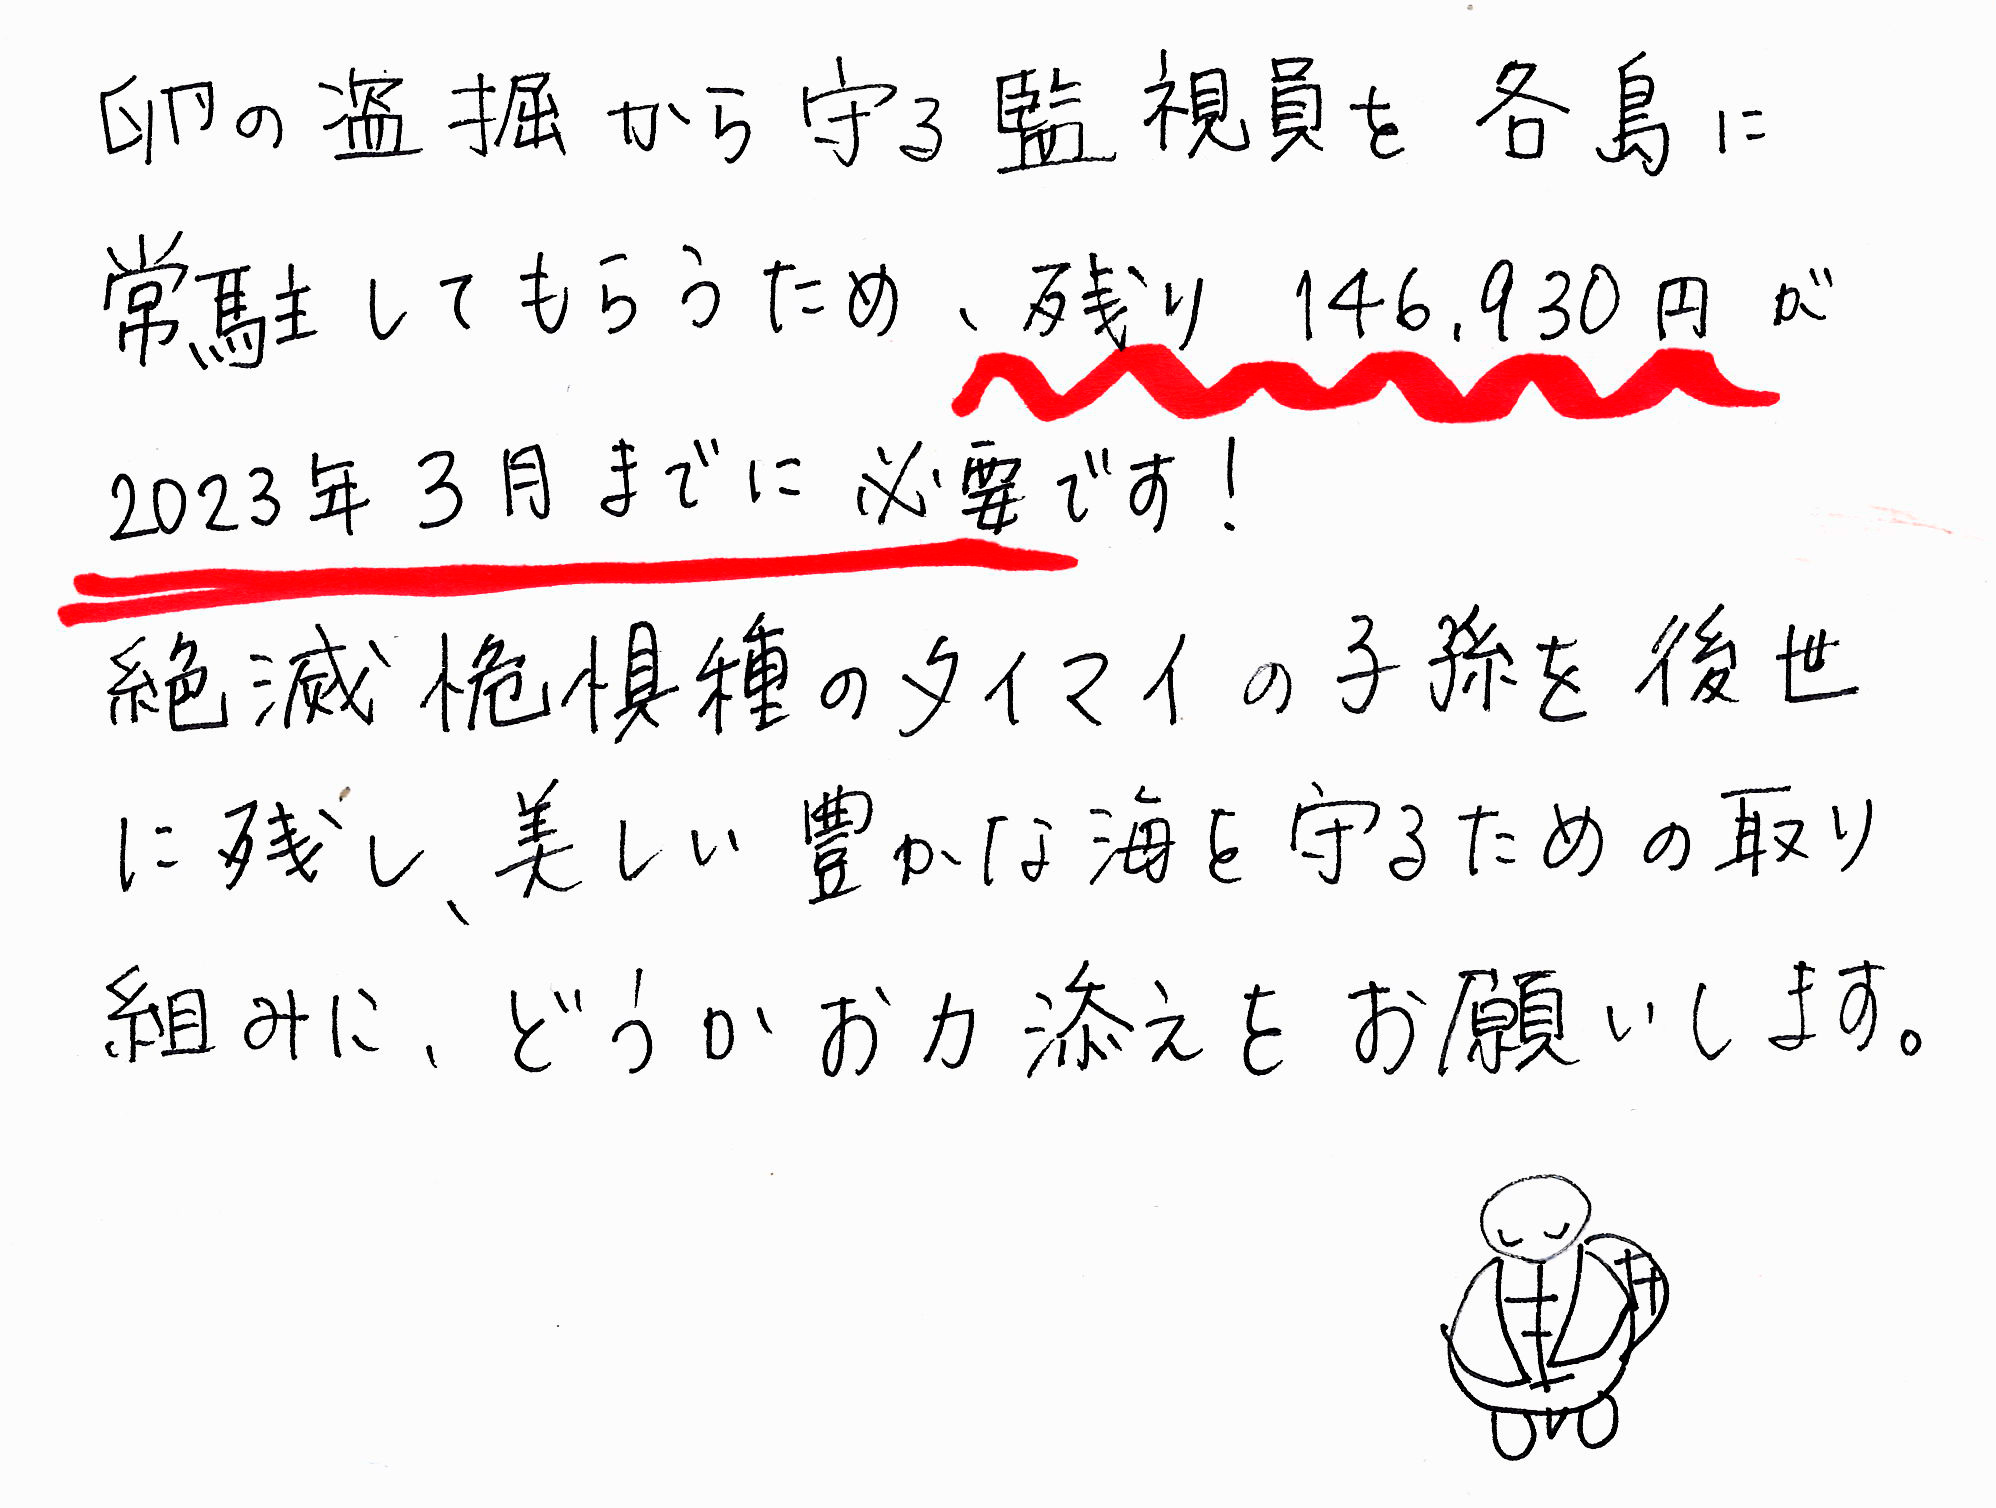 卵の盗掘から守る監視員を各島に
常駐してもらうため、残り 146,930円が
2023年3月までに必要です!
絶滅危惧種のタイマイの子孫を後世
に残し、美しい豊かな海を守るための取り
組みに、どうかお力添えをお願いします。